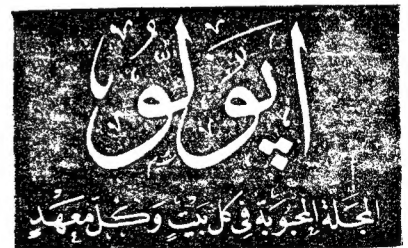 اپولو
المجلة المحبوبة في كل بيت وكل معهد